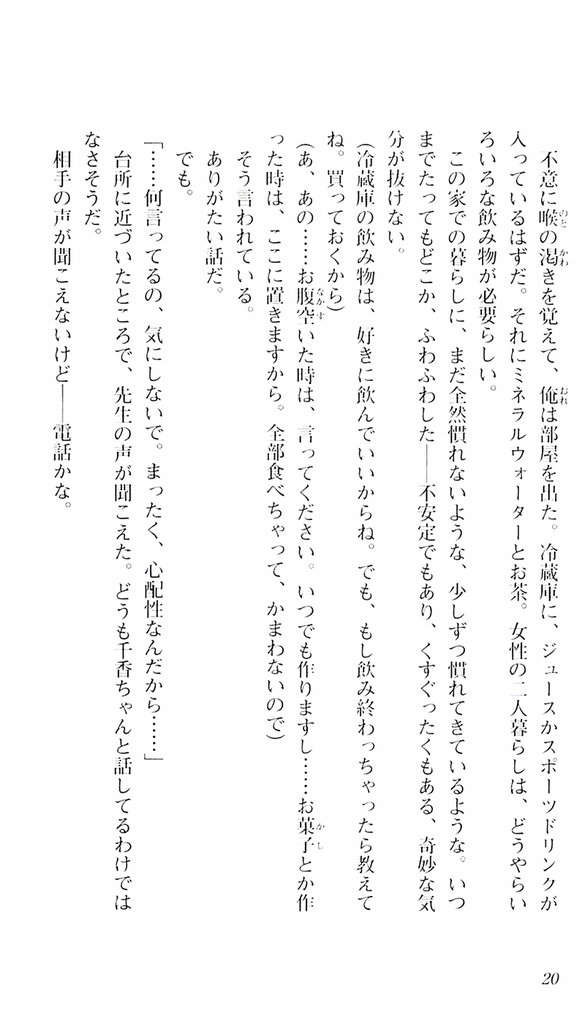 不意に喉の渇きを覚えて、俺は部屋を出た。冷蔵庫に、ジュースかスポーツドリンクが
入っているはずだ。それにミネラルウォーターとお茶。女性の二人暮らしは、どうやらい
ろいろな飲み物が必要らしい。
この家での暮らしに、まだ全然慣れないような、少しずつ慣れてきているような。いつ
までたってもどこか、ふわふわした――不安定でもあり、くすぐったくもある、奇妙な気
分が抜けない。
(冷蔵庫の飲み物は、好きに飲んでいいからね。でも、もし飲み終わっちゃったら教えて
ね。買っておくから)
(あ、あの……お腹空いた時は、言ってください。いつでも作りますし……お菓子とか作
った時は、ここに置きますから。全部食べちゃって、かまわないので)
そう言われている。
ありがたい話だ。
でも。
「……何言ってるの、気にしないで。まったく、心配性なんだから……」
台所に近づいたところで、先生の声が聞こえた。どうも千香ちゃんと話してるわけでは
なさそうだ。
相手の声が聞こえないけど――電話かな。
20